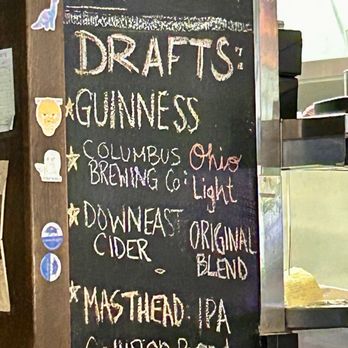 DRAFTS:
GUINNESS
COLUMBUS Ohio
BREWING Co: Light
DOWNEAST ORIGINAL
CIDER BLEND
MASTHEAD · IPA